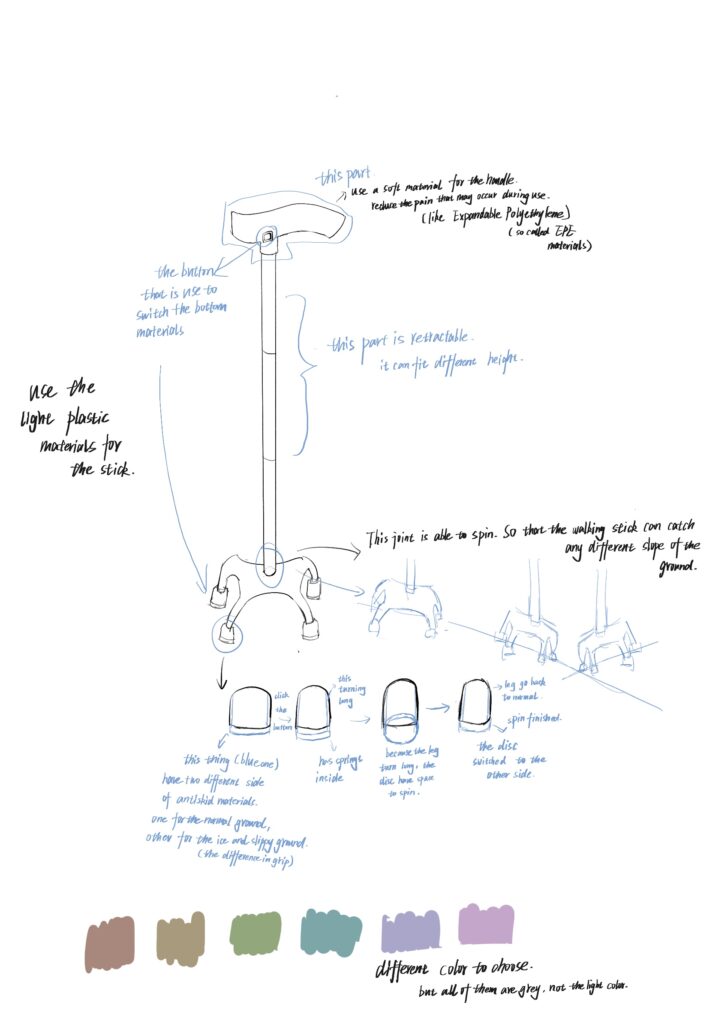 this part
use a soft material for the handle.
reduce the pain that may occur during use.
(like Expandable Polyethylene)
(so called EPE
materials)
the button
that is use to
switch the bottom
materials
this part is retractable.
it can fit different height.
use the
light plastic
materials for
the stick.
This joint is able to spin. So that the walking stick can catch
any different slope of the
ground.
click
the
button
this
turning
long
has springs
inside
because the leg
turn long, the
disc have space
to spin.
leg go back
to normal.
spin finished.
the disc
switched to the
other side.
this thing (blue one)
have two different side
of antiskid materials.
one for the normal ground,
other for the ice and slippy ground.
(the difference in grip)
different color to choose.
but all of them are grey, not the light color.